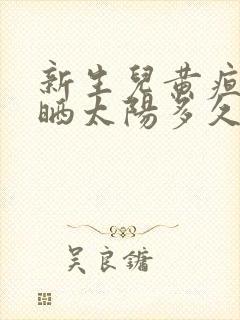 新生兒黄疸
晒太陽多久
吴良鏞